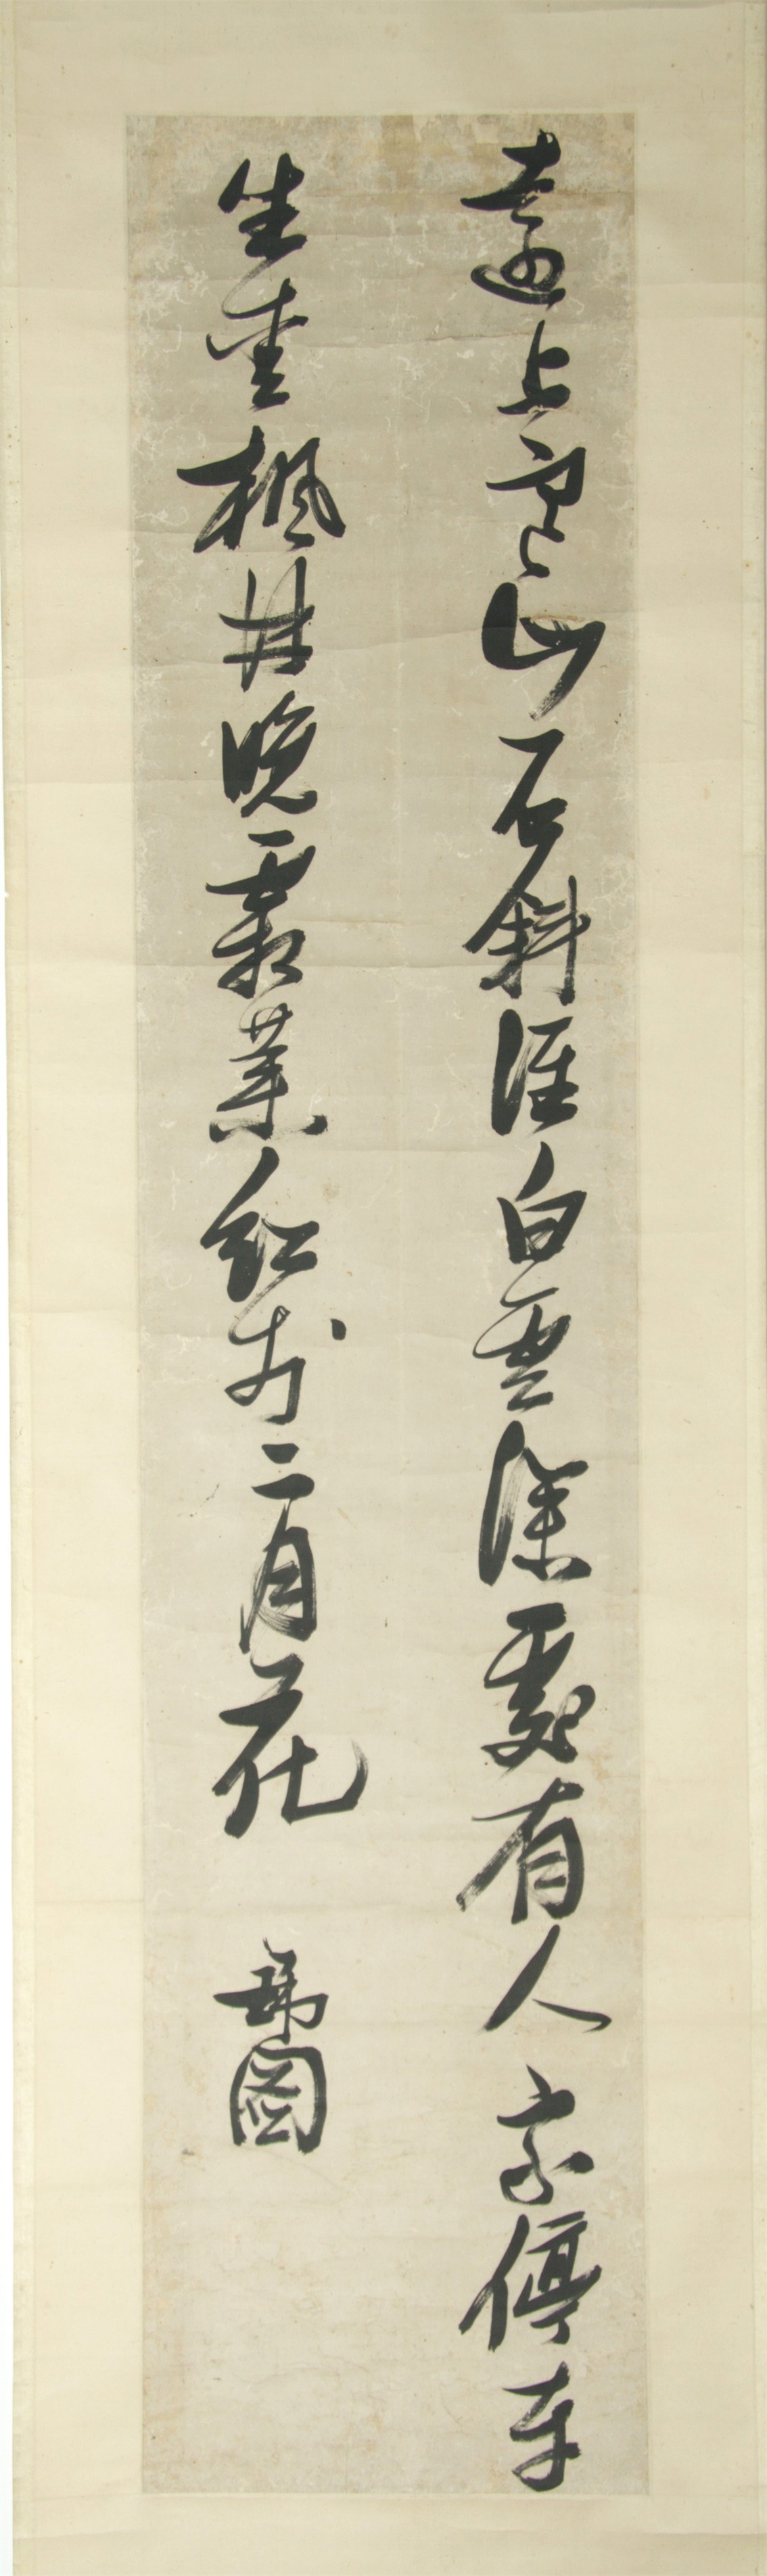 遠上寒山石斜徑白雲深處有人家停車
坐愛楓林晚霜葉紅於二月花 瑞圖